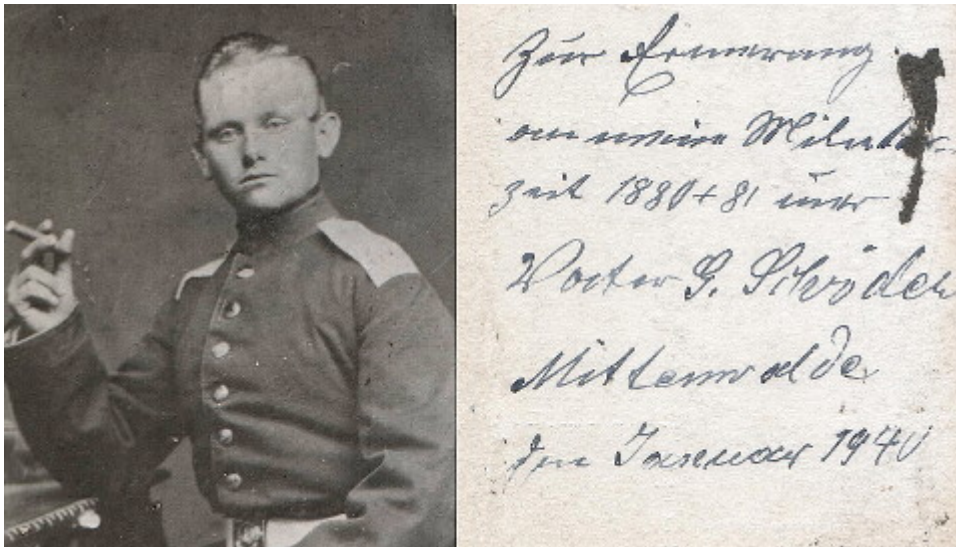 Zur Erinnerung
an meine Militär-
zeit 1880+81
Vater G. Schröder
Mittenwalde
Im Januar 1940